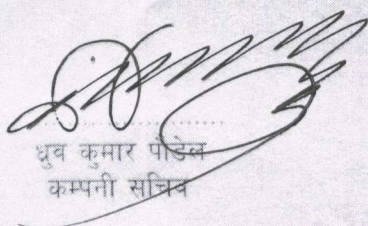 ध्रुव कुमार पौडेल
कम्पनी सचिव